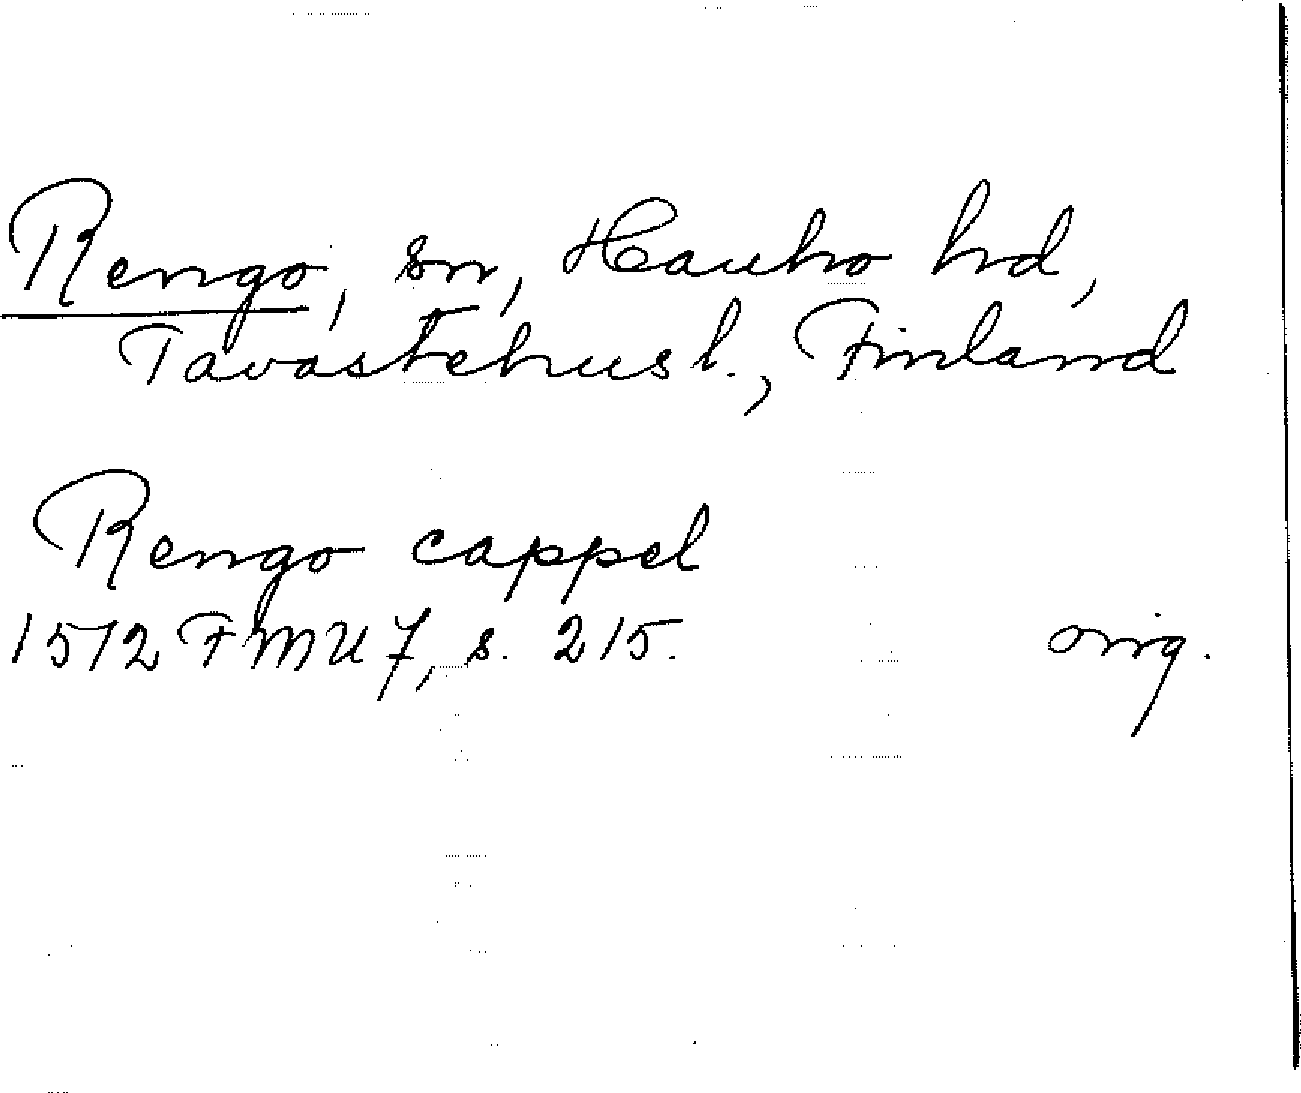 Rengo, sn, Hauho hd,
Tavastehus l., Finland
Rengo cappel
1512 FMU 7, s. 215. orig.